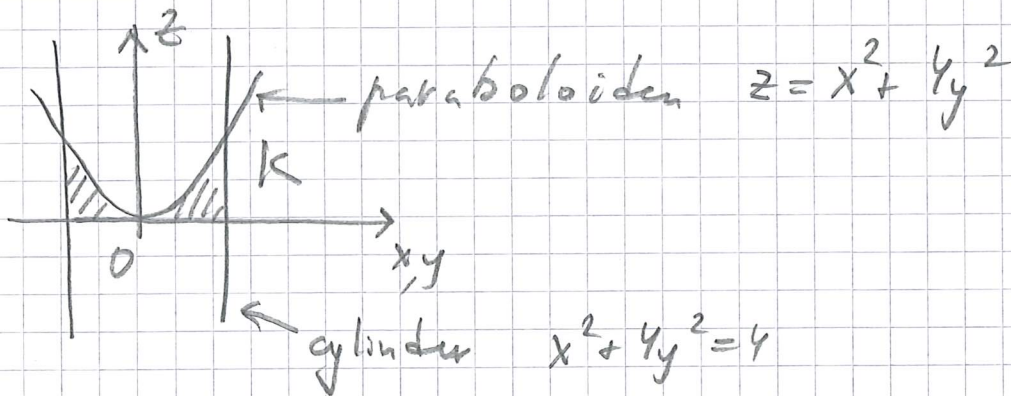 z
paraboloiden z = x² + 4y²
K
0
x,y
cylinder x² + 4y² = 4